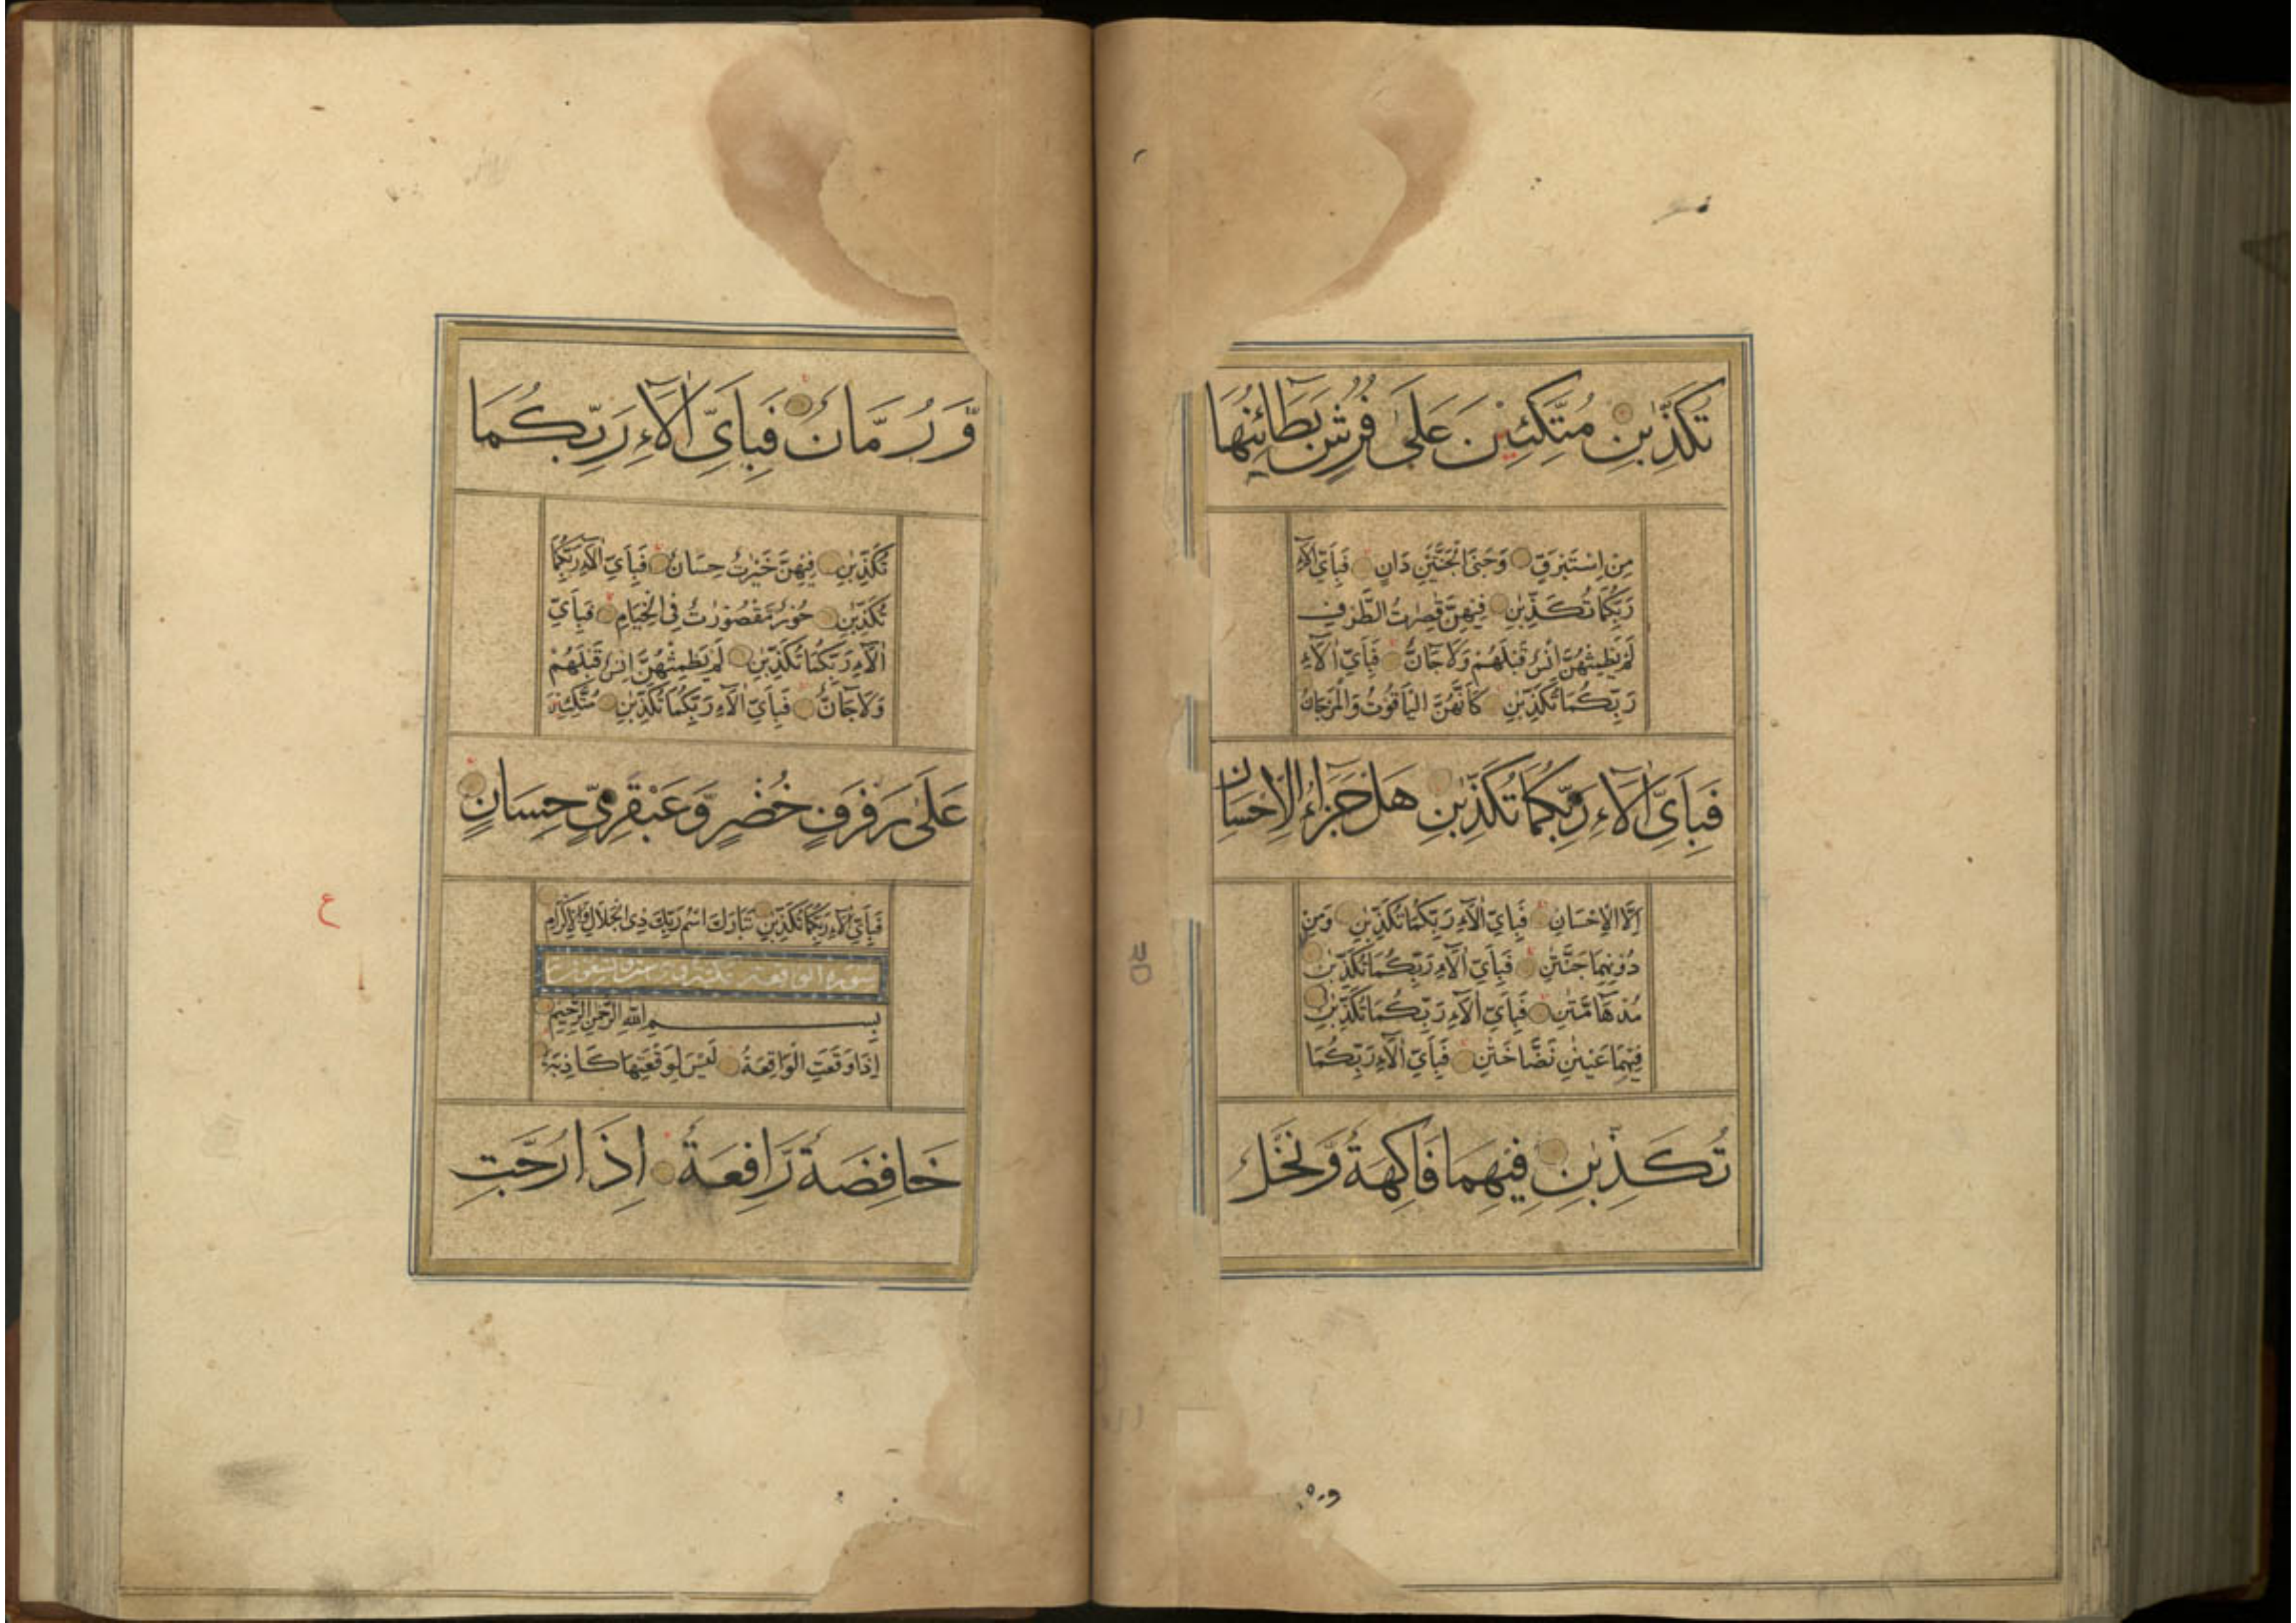 تُكَذِّبٰنِ مُتَّكِئِيْنَ عَلٰى فُرُشٍ بَطَآئِنُهَا
مِنْ اِسْتَبْرَقٍ وَجَنَا الْجَنَّتَيْنِ دَانٍ فَبِاَيِّ اٰلَآءِ
رَبِّكُمَا تُكَذِّبٰنِ فِيْهِنَّ قٰصِرٰتُ الطَّرْفِ
لَمْ يَطْمِثْهُنَّ اِنْسٌ قَبْلَهُمْ وَلَا جَآنٌّ فَبِاَيِّ اٰلَآءِ
رَبِّكُمَا تُكَذِّبٰنِ كَاَنَّهُنَّ الْيَاقُوْتُ وَالْمَرْجَانُ
فَبِاَيِّ اٰلَآءِ رَبِّكُمَا تُكَذِّبٰنِ هَلْ جَزَآءُ الْاِحْسَانِ
اِلَّا الْاِحْسَانُ فَبِاَيِّ اٰلَآءِ رَبِّكُمَا تُكَذِّبٰنِ وَمِنْ
دُوْنِهِمَا جَنَّتٰنِ فَبِاَيِّ اٰلَآءِ رَبِّكُمَا تُكَذِّبٰنِ
مُدْهَآمَّتٰنِ فَبِاَيِّ اٰلَآءِ رَبِّكُمَا تُكَذِّبٰنِ
فِيْهِمَا عَيْنٰنِ نَضَّاخَتٰنِ فَبِاَيِّ اٰلَآءِ رَبِّكُمَا
تُكَذِّبٰنِ فِيْهِمَا فَاكِهَةٌ وَّنَخْلٌ
وَّرُمَّانٌ فَبِاَيِّ اٰلَآءِ رَبِّكُمَا
تُكَذِّبٰنِ فِيْهِنَّ خَيْرٰتٌ حِسَانٌ فَبِاَيِّ اٰلَآءِ رَبِّكُمَا
تُكَذِّبٰنِ حُوْرٌ مَّقْصُوْرٰتٌ فِى الْخِيَامِ فَبِاَيِّ
اٰلَآءِ رَبِّكُمَا تُكَذِّبٰنِ لَمْ يَطْمِثْهُنَّ اِنْسٌ قَبْلَهُمْ
وَلَا جَآنٌّ فَبِاَيِّ اٰلَآءِ رَبِّكُمَا تُكَذِّبٰنِ مُتَّكِئِيْنَ
عَلٰى رَفْرَفٍ خُضْرٍ وَّعَبْقَرِيٍّ حِسَانٍ
فَبِاَيِّ اٰلَآءِ رَبِّكُمَا تُكَذِّبٰنِ تَبَارَكَ اسْمُ رَبِّكَ ذِى الْجَلَالِ وَالْاِكْرَامِ
سورة الواقعة
بِسْمِ اللّٰهِ الرَّحْمٰنِ الرَّحِيْمِ
اِذَا وَقَعَتِ الْوَاقِعَةُ لَيْسَ لِوَقْعَتِهَا كَاذِبَةٌ
خَافِضَةٌ رَّافِعَةٌ اِذَا رُجَّتِ
ع